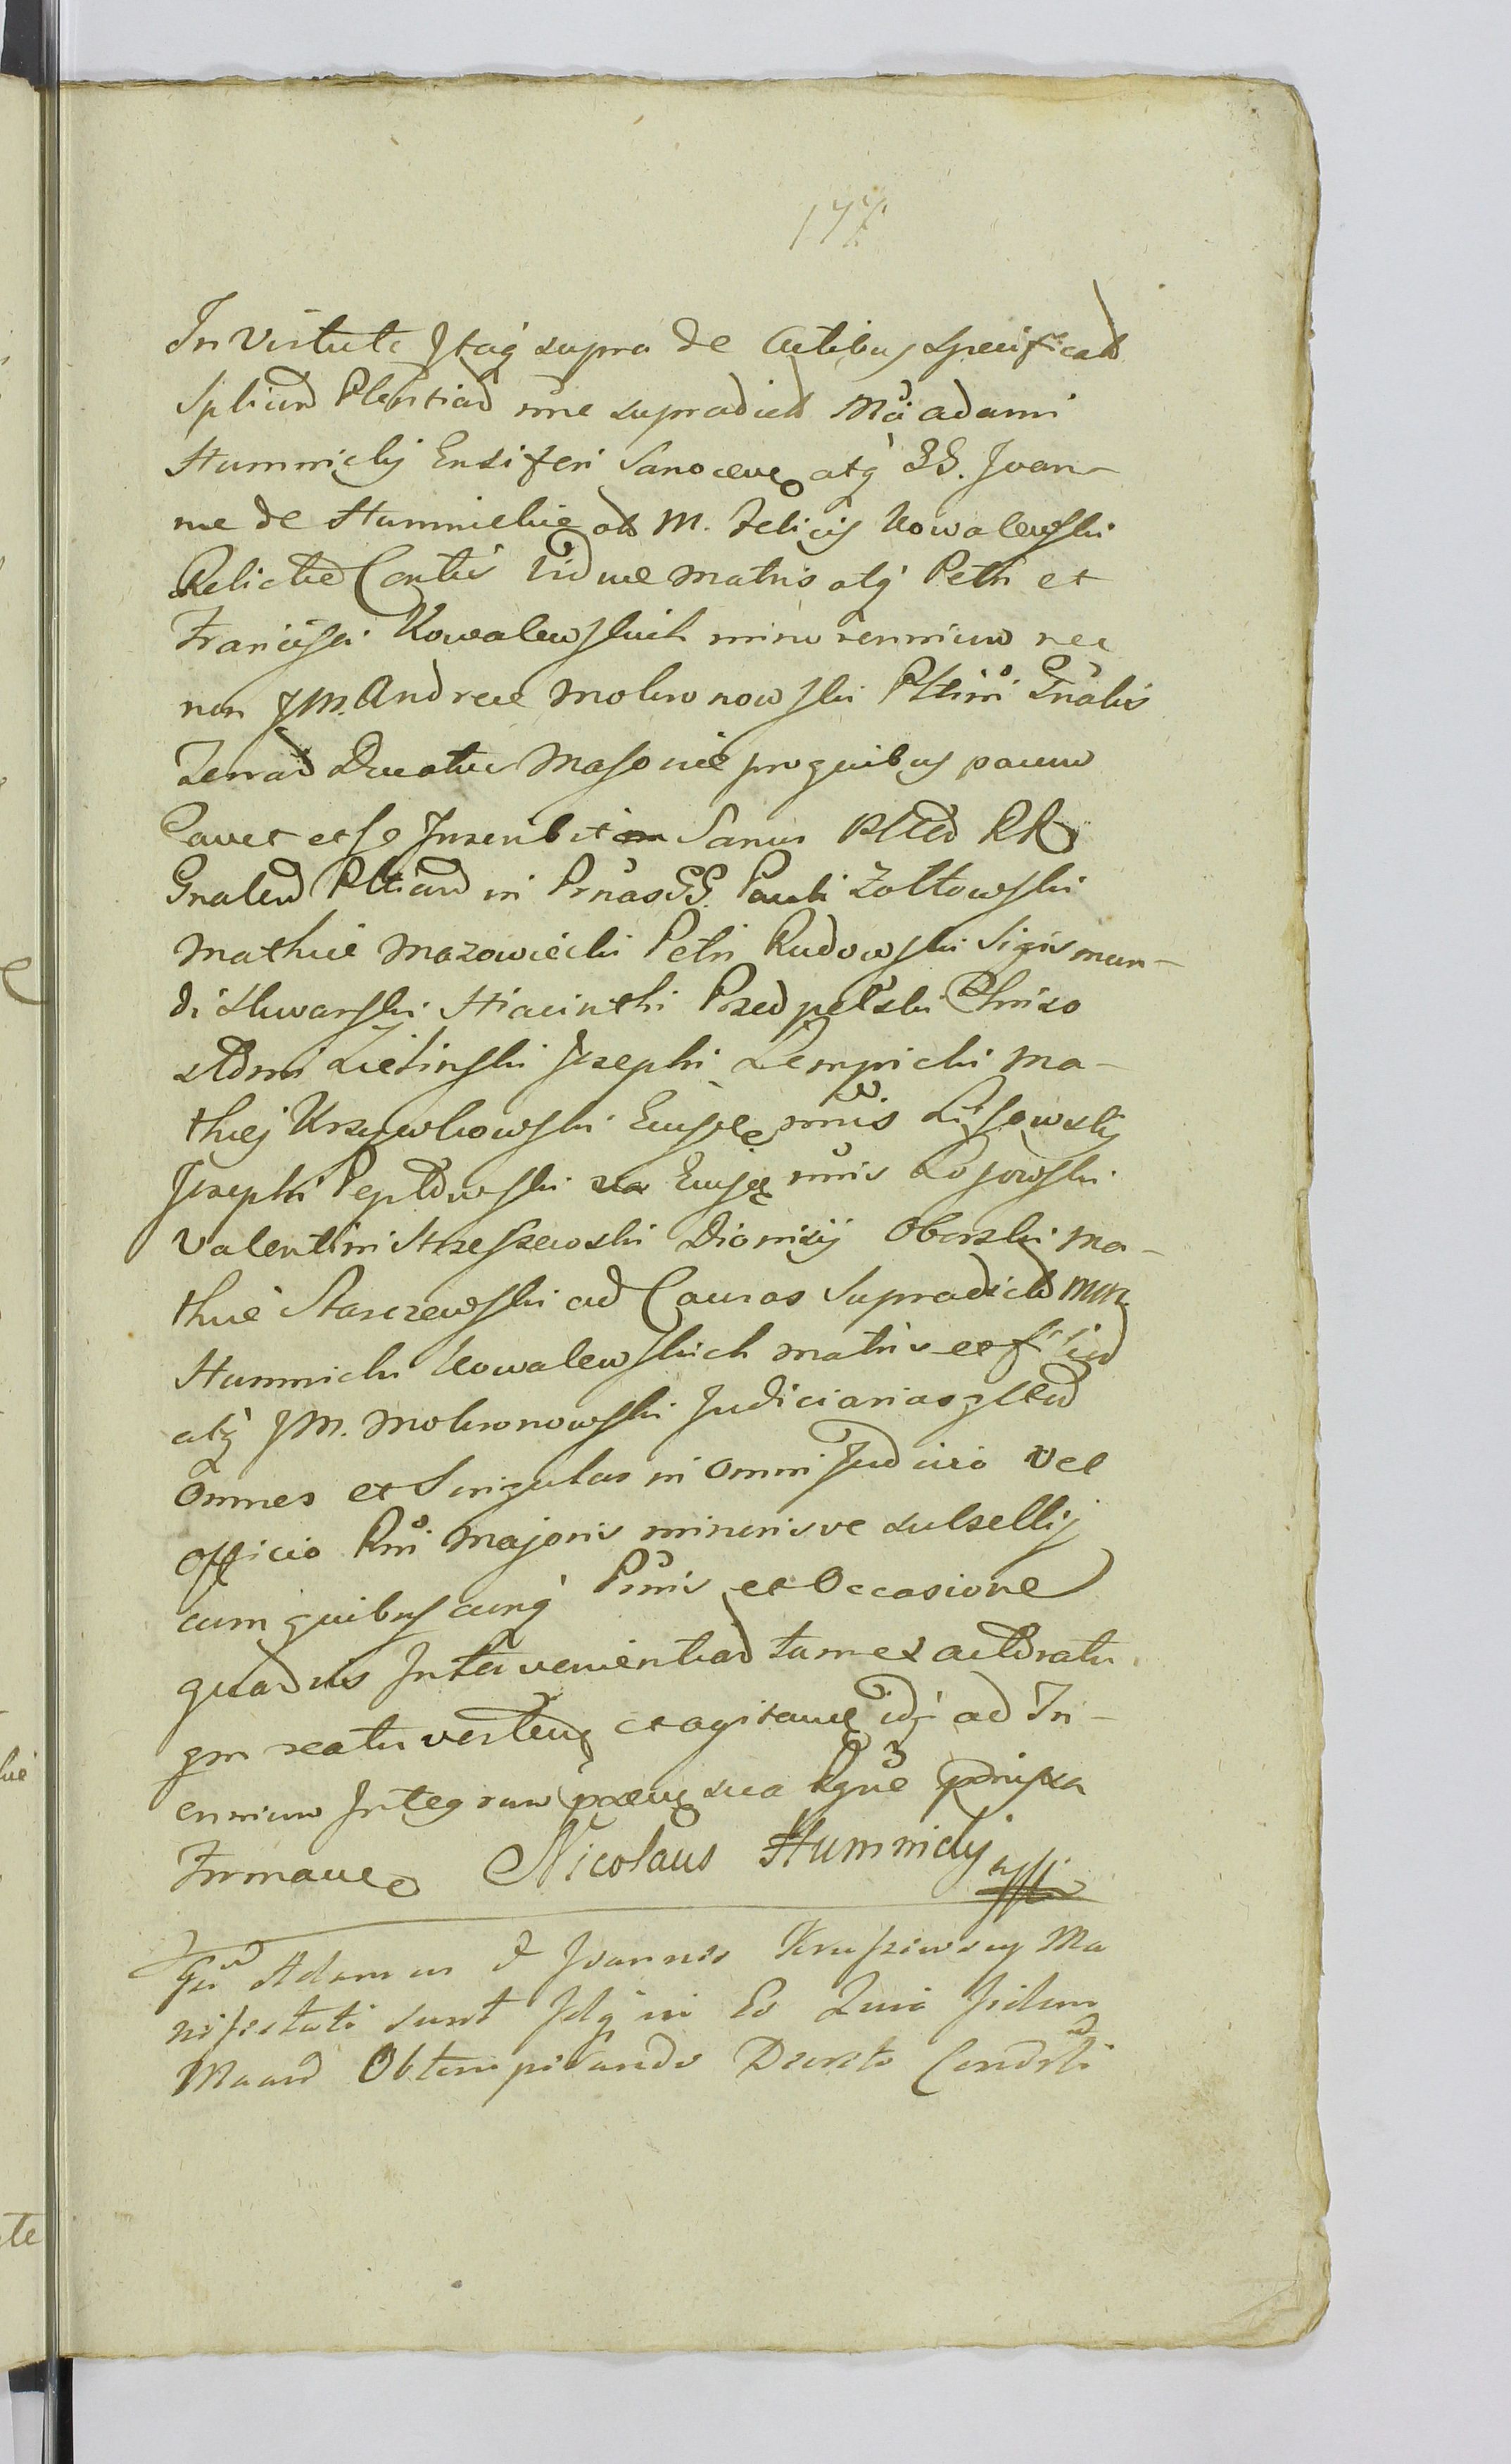 177
In Virtute Itaq supra de Actibus specificat
Spliud Plentiad nne supradict Mci Adami
Humnicky Ensiferi Sanocen atq GG. Joan-
nae de Humnickie ols M. Felicis Kowalewski
Relictae Contlis Viduae Matris atq Petri et
Francisci Kowalewskich minorennium nec
non JM. Andreae Mokronowski Pltini Gnalis
Terrad Ducatus Masoviae pro quibus parum
Cavet et se Inscribit Sanus
Gnaled Pltiad in Prnas GG. Pauli Zołtowski
Mathiae Mazowiecki Petri Rudowski Sigismun-
di Sluvarski Hiacinthi Przedpełski Chrizo
stomi Zieliński Josephi Lempicki Ma-
thiej Krzywkowski Eusde nnis Lisowsky
Josephi Pepłowski Eusde nnis Łosowski
Valentini Strzeszewski Dionisij Oborski Ma-
thiae Starczewski ad Causas Supradict MM.
Humnicki Kowalewskich matris et filiod
atq JM. Mokronowski Judiciarias
Omnes et Singulas in omni Judicio vel
Officio Rni Majoris minorisve subsellij
cum quibuscunq Psnis et Occasione
quadvis Intervenientiad tam ex actoratu
qm reatu verten et agitan idq ad Tri-
ennium Integrum sua
Firman Nicolaus Humnicky
Gsi Adamus & Joannes Kruszewscy Ma
nifestati sunt Idq in Eo Quia Jidem
Maand Obtemperando Decreto Condrti